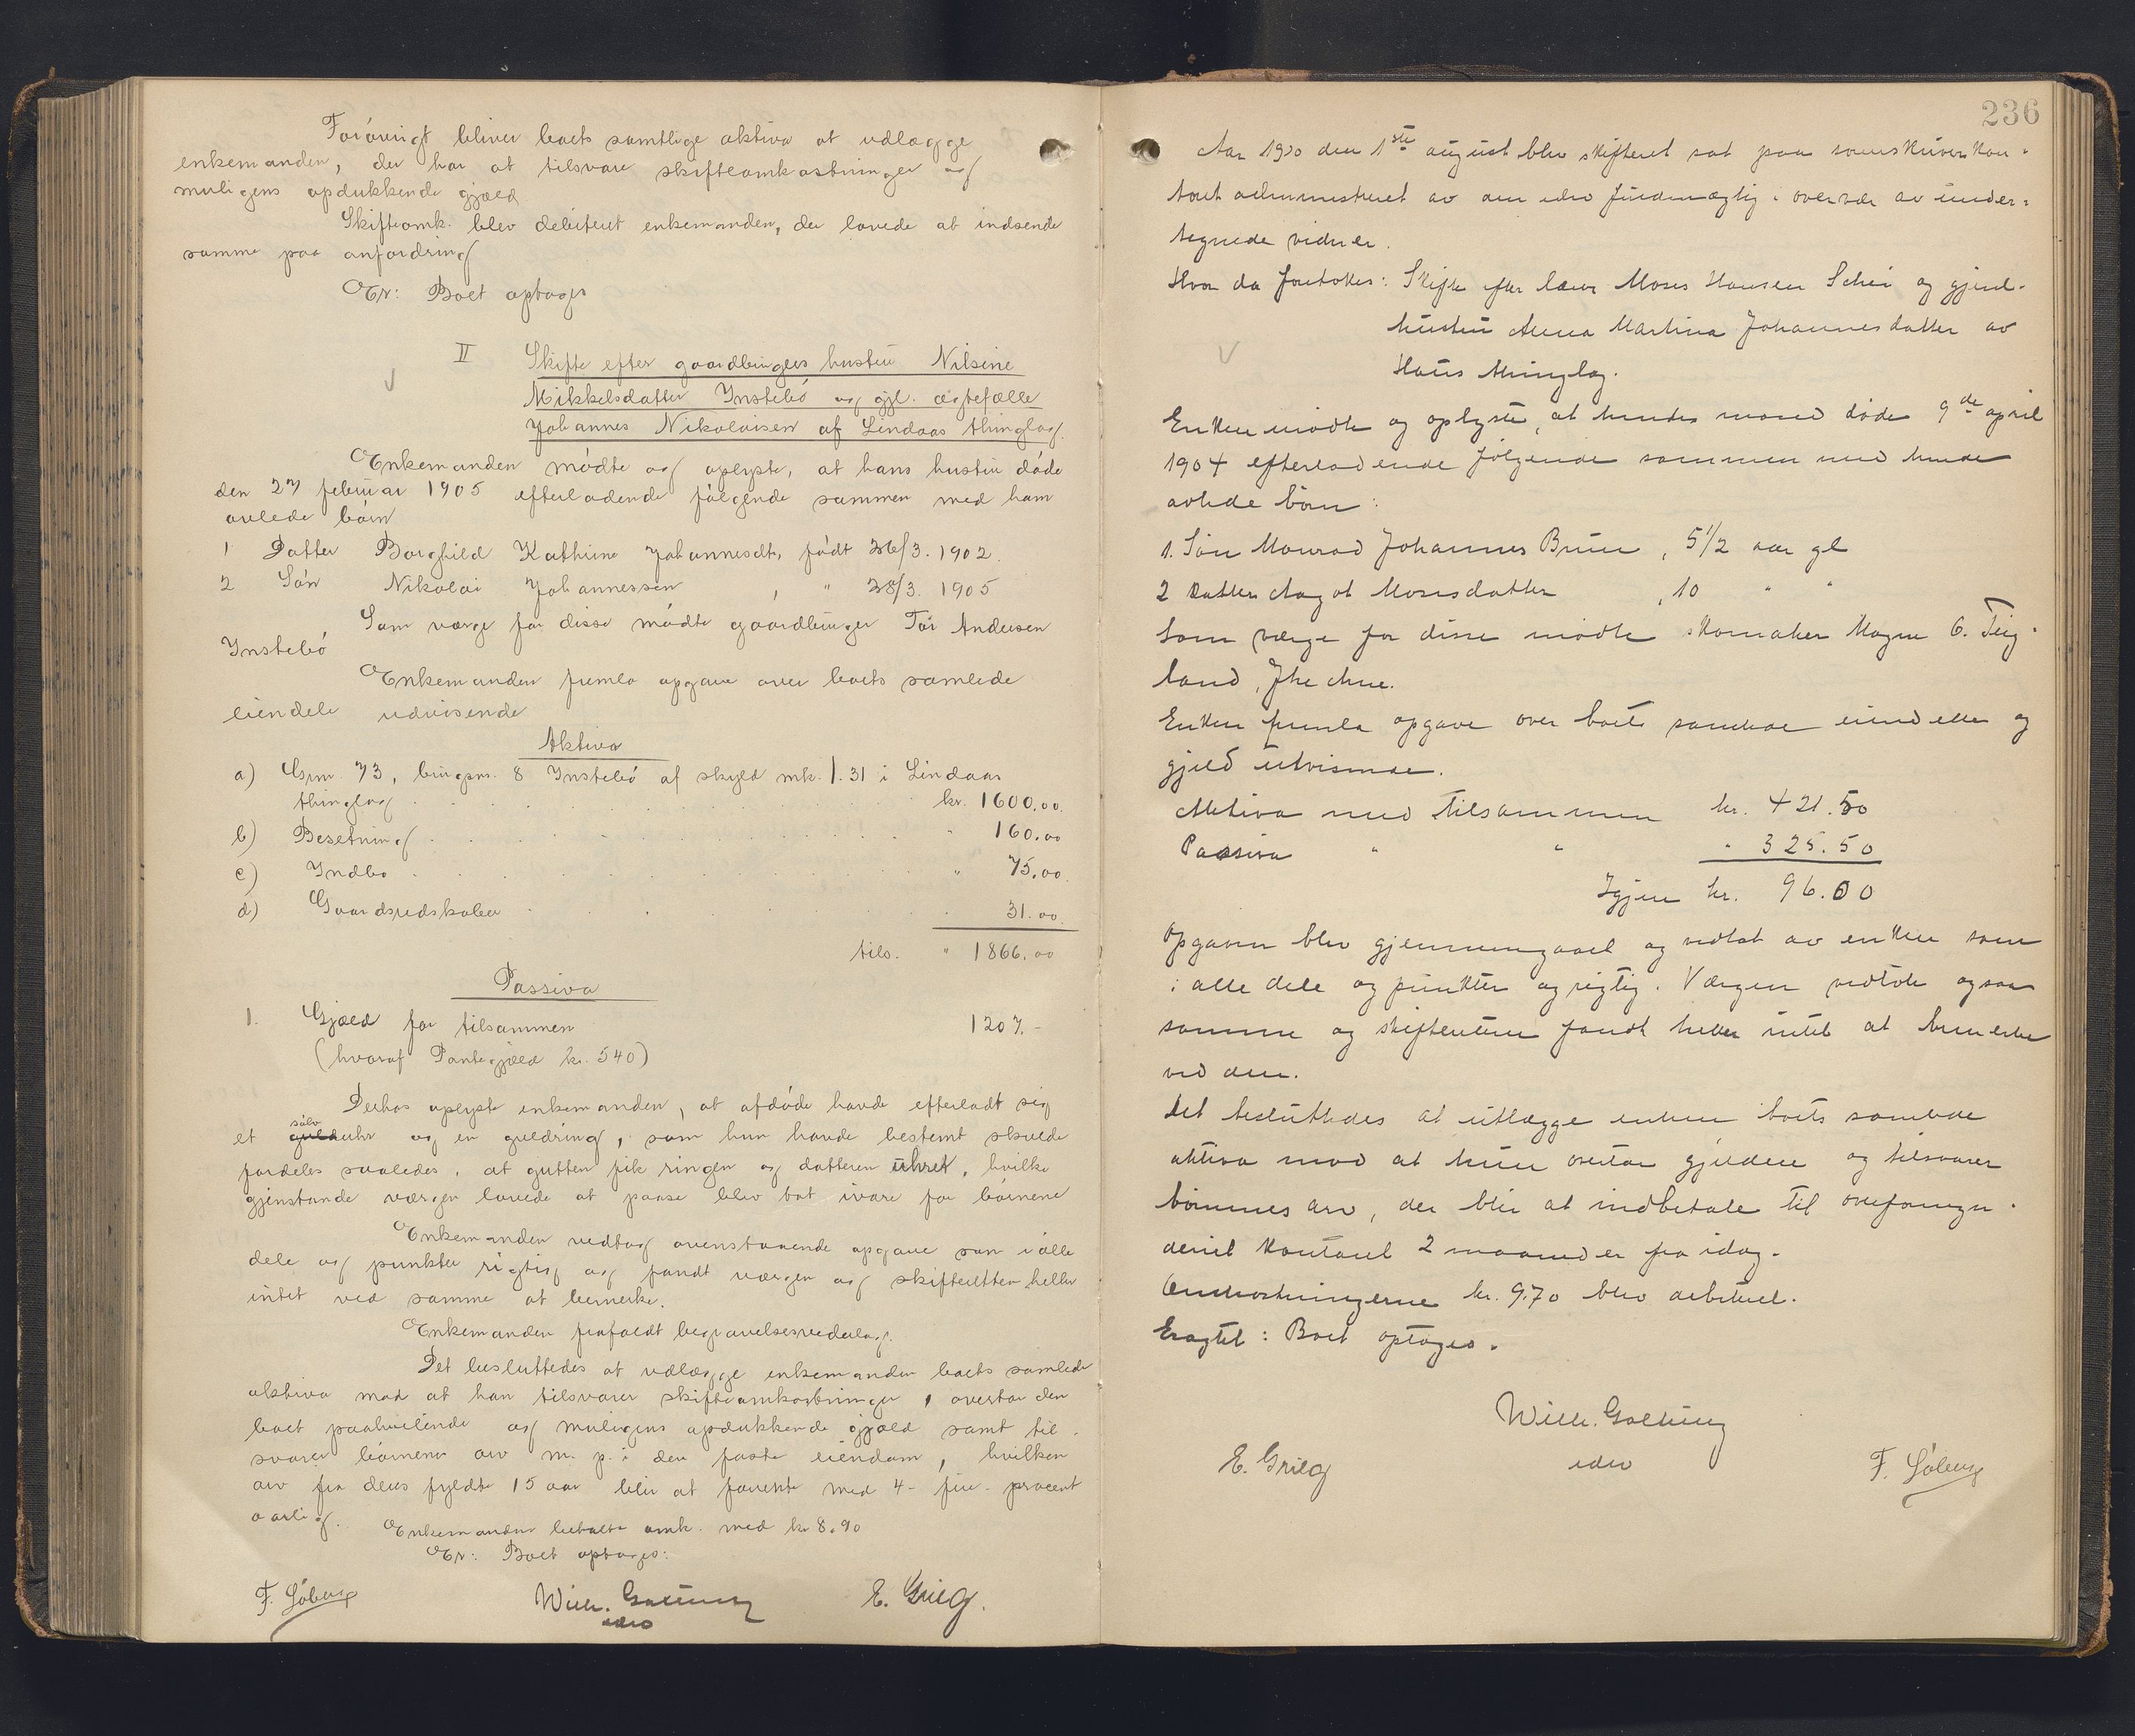 Forövrigt bliver boets samtlige aktiva at udlægge
enkemanden, der har at tilsvare skifteomkostninger og
muligens opdukkende gjæld
Skifteomk. blev debiteret enkemanden, der lovede at indsende
samme paa anfordring
Er: Boet optages
II Skifte efter gaardbrugers hustru Nilsine
Mikkelsdatter Instebö og gjl. ægtefælle
Johannes Nikolaisen af Lindaas thinglag.
Enkemanden mödte og oplyste, at hans hustru döde
den 27 februar 1905 efterladende fölgende sammen med ham
avlede börn
1 Datter Borghild Kathrine Johannesdt, födt 26/3. 1902.
2 Sön Nikolai Johannessen , " 28/3. 1905
Som værge for disse mödte gaardbruger Tor Andersen
Instebö
Enkemanden fremla opgave over boets samlede
eiendele udvisende
Aktiva
a) Grn. 73, brugsn. 8 Instebö af skyld mk. 1.31 i Lindaas
thinglag kr. 1600.00.
b) Besetning " 160.00
c) Indbo " 75.00.
d) Gaardsredskaber 31.00.
tils. " 1866.00
Passiva
1. Gjæld for tilsammen 1207.-
(hvoraf Pantegjæld kr. 540)
Derhos oplyste enkemanden, at afdöde havde efterladt sig
sölv
et guld uhr og en guldring, som hun havde bestemt skulde
fordeles saaledes, at gutten fik ringen og datteren uhret, hvilke
gjenstande værgen lovede at paase blev tat ivare for börnene
Enkemanden vedtog ovenstaaende opgave som i alle
dele og punkter rigtig og fandt værgen og skifteretten heller
intet ved samme at bemerke.
Enkemanden frafaldt begravelsesvederlag.
Det besluttedes at udlægge enkemanden boets samlede
aktiva mod at han tilsvarer skifteomkostninger, overtar den
boet paahvilende og muligens opdukkende gjæld samt til-
svarer börnene arv m. p. i den faste eiendom, hvilken
arv fra deres fyldte 15 aar blir at forrente med 4 - fire - procent
aarlig.
Enkemanden betalte omk. med kr 8.90
Er: Boet optages:
F. Söberg Willr. Gollung E. Grieg.
edsv
236
Aar 1910 den 1ste august blev skifteret sat paa sorenskriverkon-
toret administreret av den edsv fuldmægtig i overvær av under-
tegnede vidner.
Hvor da foretokes: Skifte efter lærer Moses Hansen Schei og gjenl.
hustru Anna Martina Johannesdatter av
Haus thinglag.
Enken mödte og oplyste, at hendes mand döde 9de april
1904 efterladende fölgende sammen med hende
avlede börn:
1. Sön Monrad Johannes Bruun, 5 1/2 aar gl
2 Datter Aagot Mosesdatter , 10 " "
Som værge for disse mödte skomaker Magne O. Teig-
land, Ytre Arne.
Enken fremla opgave over boets samlede eiendeler og
gjeld utvisende.
Aktiva med tilsammen kr. 421.50
Passiva " " " 325.50
Igjen kr. 96.00
Opgaven blev gjennemgaaet og vedtat av enken som
i alle dele og punkter og rigtig. Værgen vedtok ogsaa
samme og skifteretten fandt heller intet at bemerke
ved den.
Det besluttedes at utlægge enken boets samlede
aktiva mod at hun overtar gjelden og tilsvarer
börnenes arv, der blir at indbetale til overformyn-
deriet kontoret 2 maaneder fra idag.
Omkostningerne kr. 9.70 blev debiteret.
Eragtet: Boet optages.
Willr. Gollung
E. Grieg edsv F. Söberg